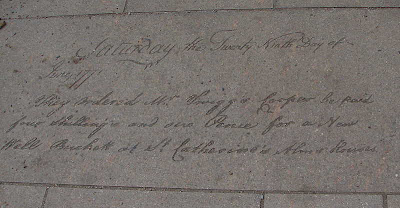 Saturday the Twenty Ninth Day of
They ordered Mr. Cooper be paid
four Shillings and one Pence for a New
Well Bucket at St. Catherine's Alms Houses